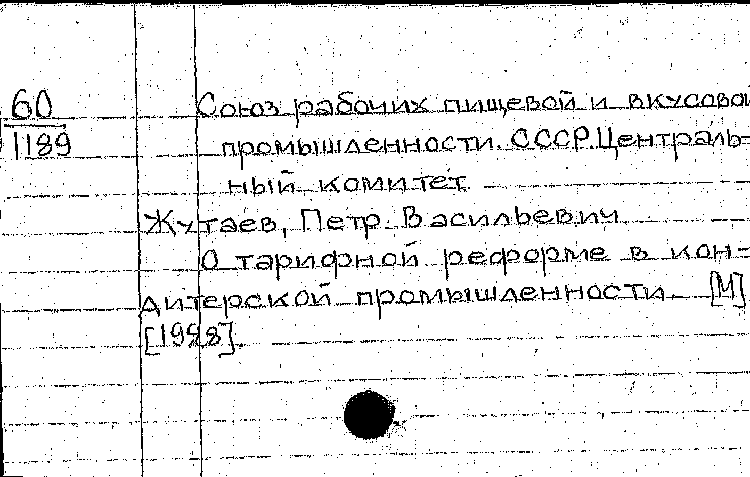 60 Союз рабочих пищевой и вкусовой
1189 промышленности. СССР. Централь-
ный комитет
Жутаев, Петр Васильевич
О тарифной реформе в кон-
дитерской промышленности. [М]
[1928].